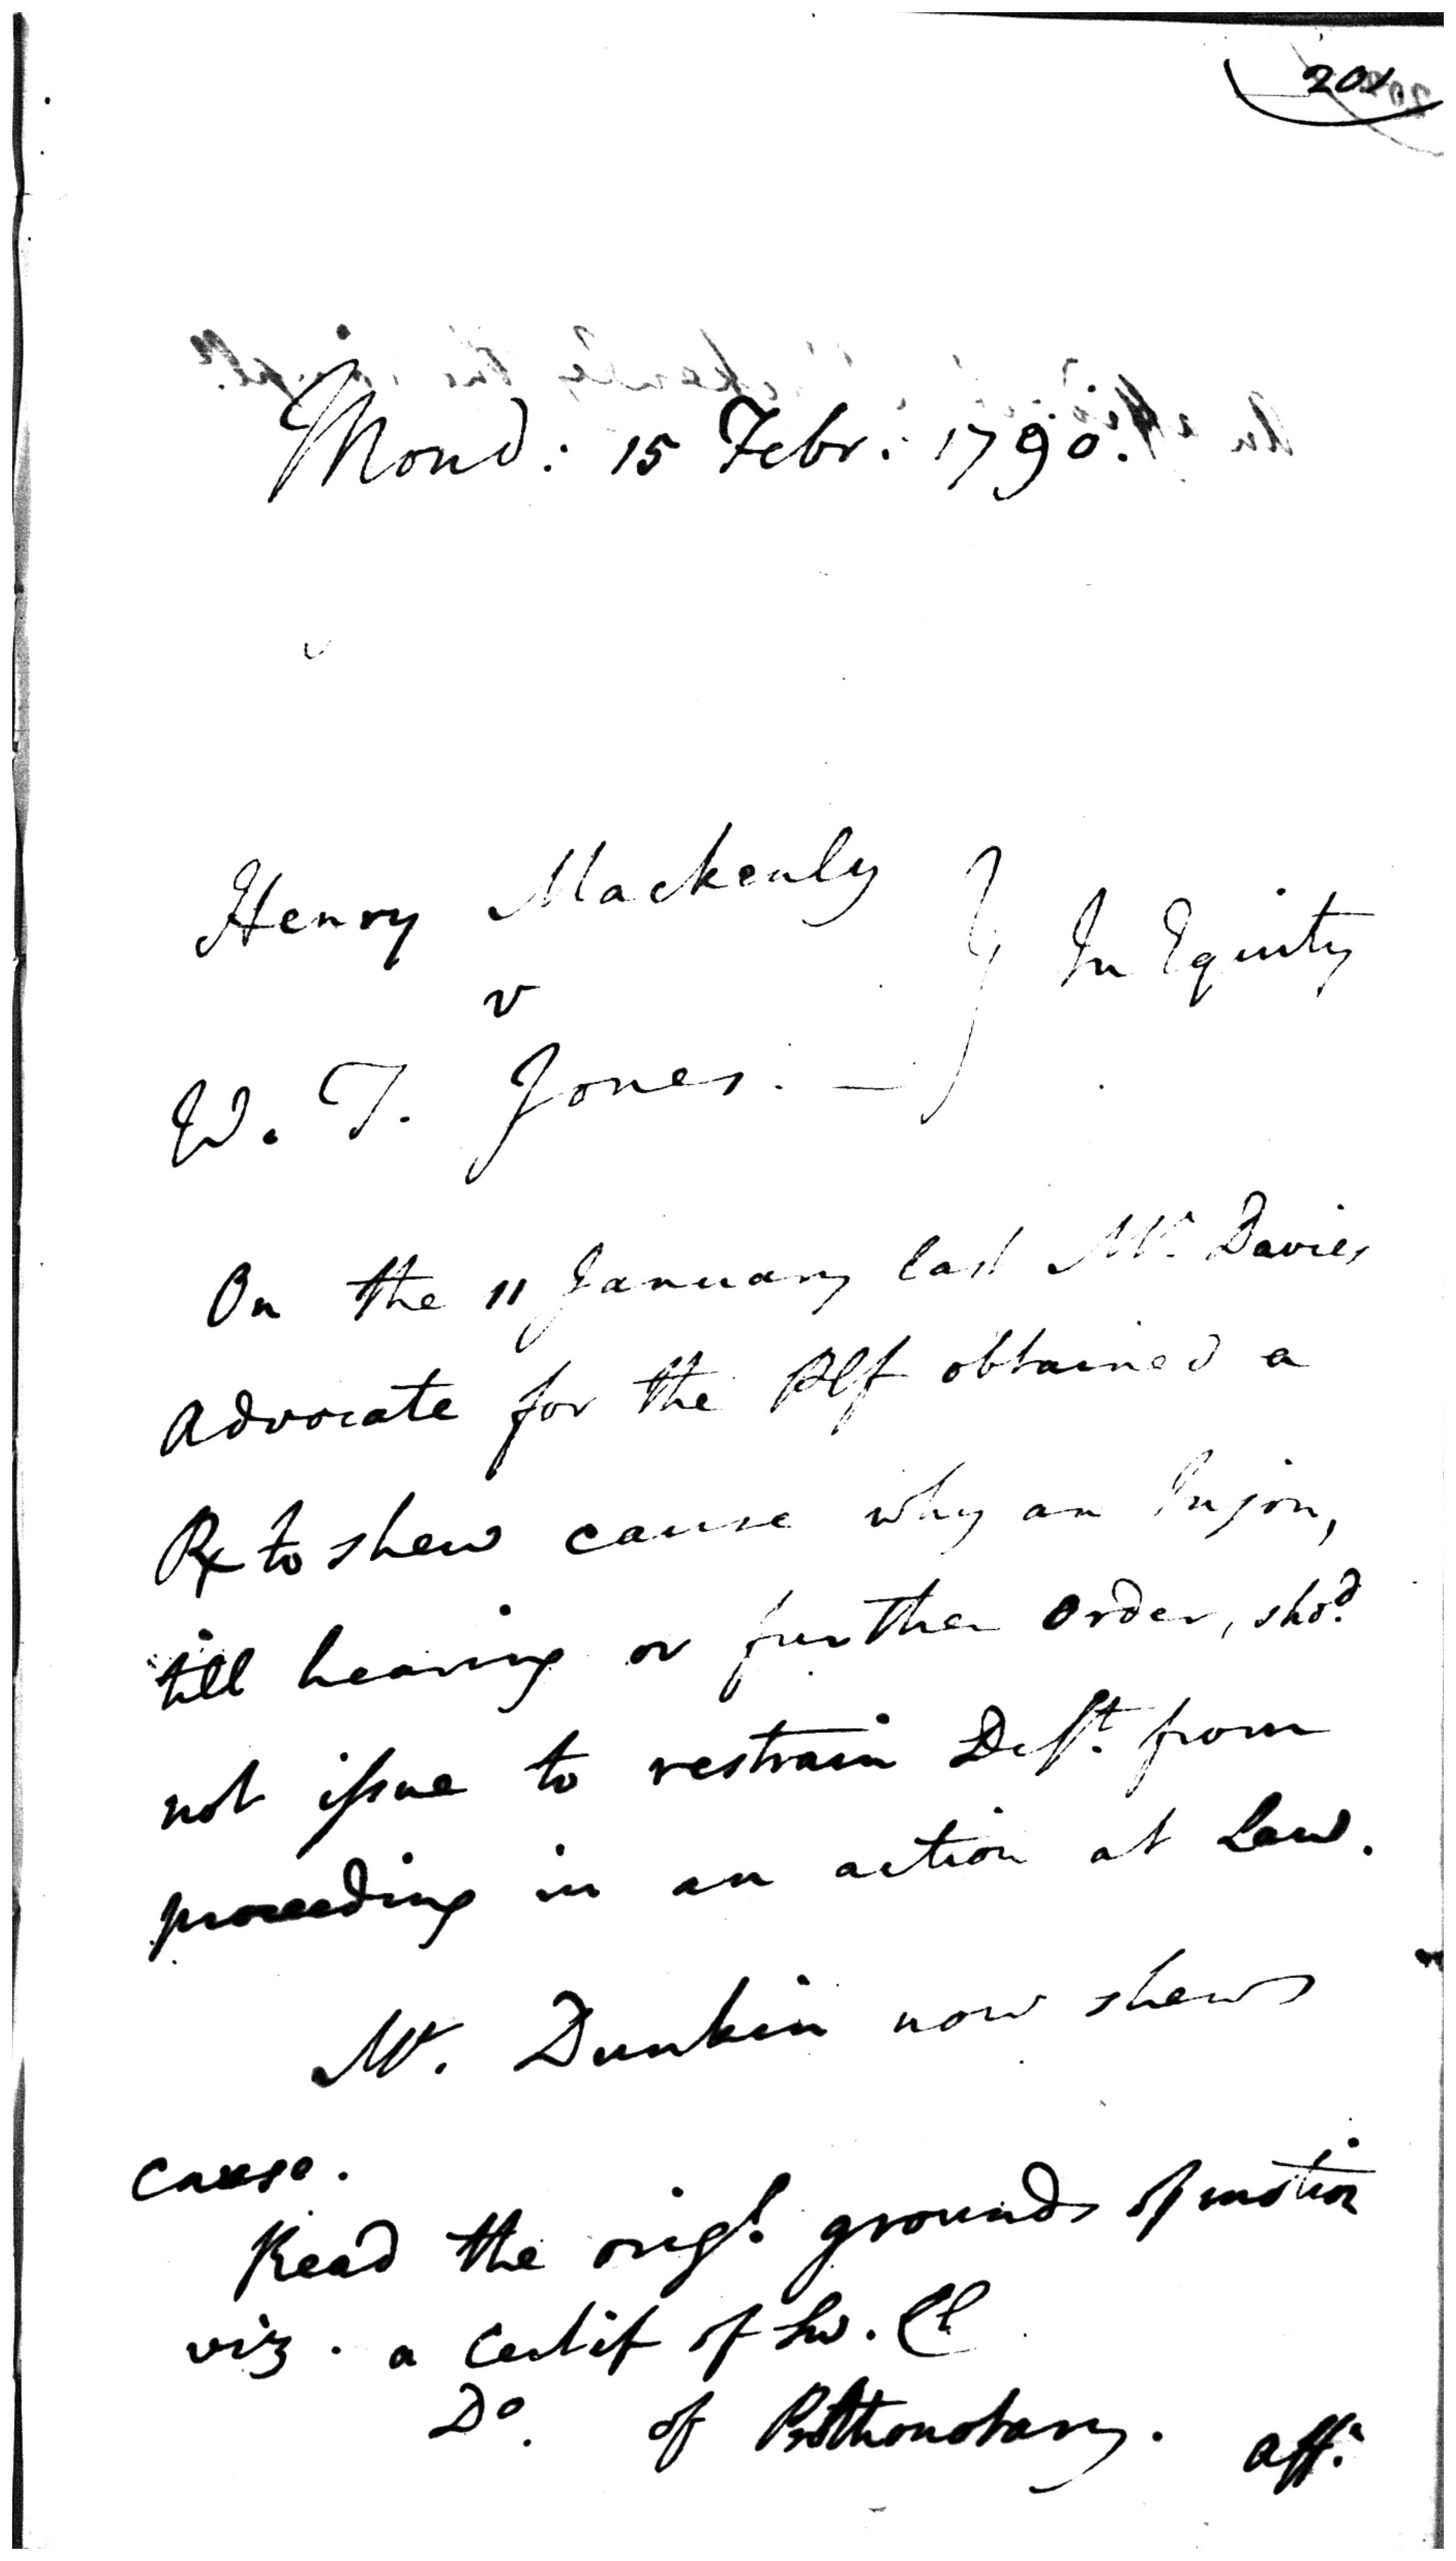 201
Mond: 15 Febr: 1790.
Henry Mackenly
v
In Equity
W. T. Jones. —
On the 11 January last Mr. Davies
Advocate for the Plf obtained a
Rx to shew cause why an Injon,
till hearing or further Order, shod.
not issue to restrain Deft. from
proceeding in an action at Law.
Mr. Dunkin now shews
cause.
Read the origl. grounds of motion
viz. a Certif of Sw. Cl
Do. of Prothonotary. aff.